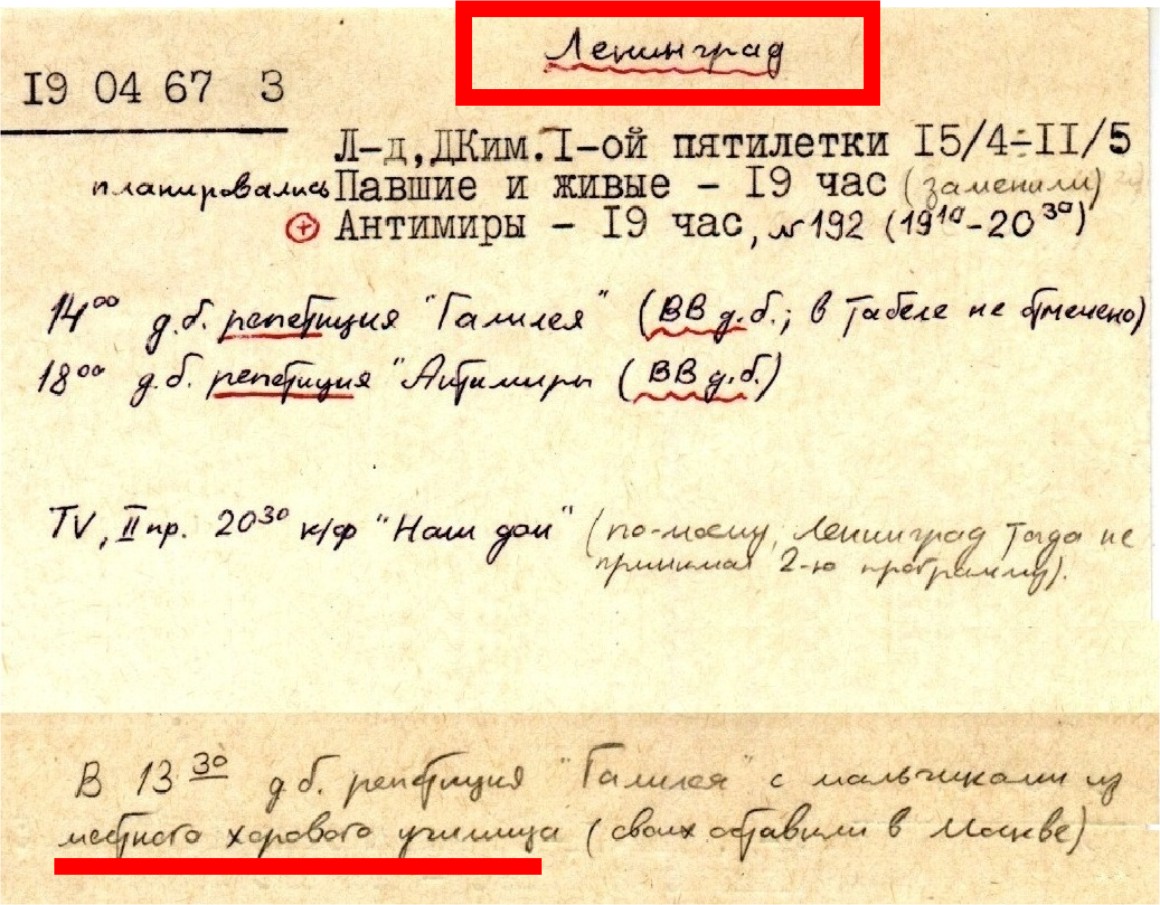 Ленинград
19 04 67 3
Л-д, ДКим. I-ой пятилетки I5/4-II/5
планировались Павшие и живые - I9 час (заменили)
+ Антимиры - I9 час, № 192 (19¹⁰-20³⁰)
14⁰⁰ д.б. репетиция "Галилея" (ВВ д.б.; в табеле не отмечено)
18⁰⁰ д.б. репетиция "Антимиры (ВВ д.б.)
TV, II пр. 20³⁰ к/ф "Наш дом" (по-моему, Ленинград тогда не
принимал 2-ю программу).
В 13³⁰ д.б. репетиция "Галилея" с мальчиками из
местного хорового училища (своих оставили в Москве)